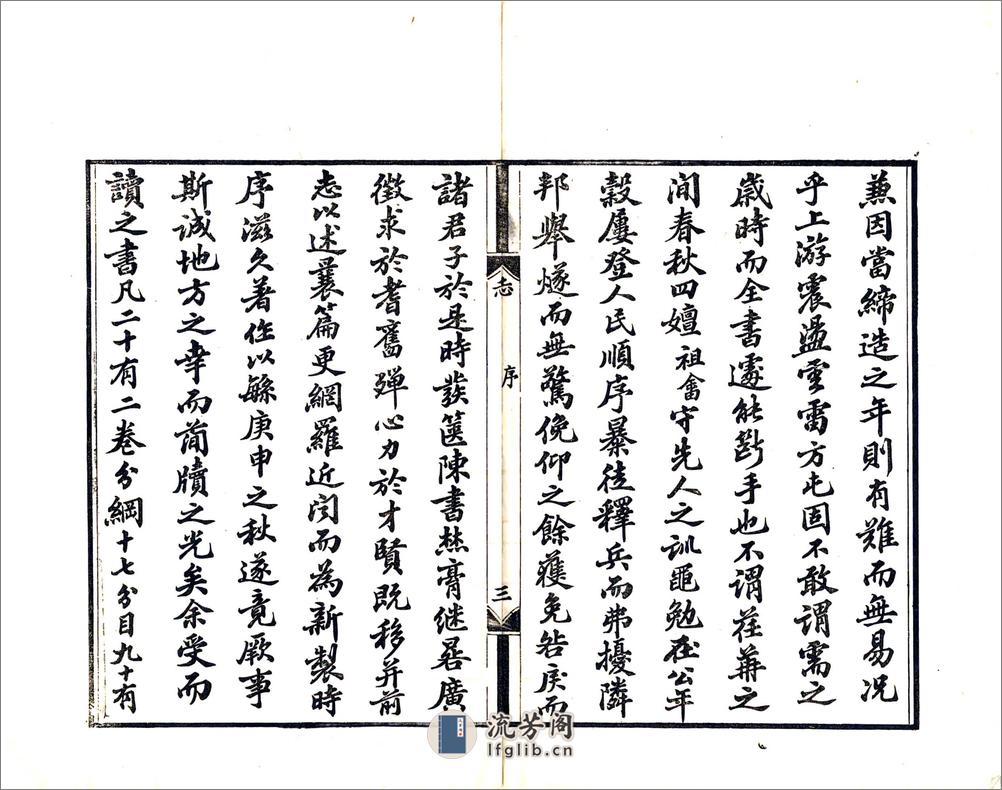 兼因當締造之年則有難而無易况
乎上游震盪雲雷方屯固不敢謂需之
歲時而全書遽能斷手也不謂茬葬之
间春秋四嬗祖畬守先人之訓黽勉在公年
穀屢登人民順序暴徒釋兵而弗擾隣
邦舉燧而無驚俛仰之餘獲免咎戾而
志
序
三
諸君子於是時發篋陳書焚膏继晷廣
徵求於耆舊殫心力於才賢既移并前
志以述曩篇更網羅近闻而為新製時
序滋久著作以緐庚申之秋遂竟厥事
斯誠地方之幸而简牘之光矣余受而
讀之書凡二十有二卷分綱十七分目九十有
流芳阁
lfglib.cn